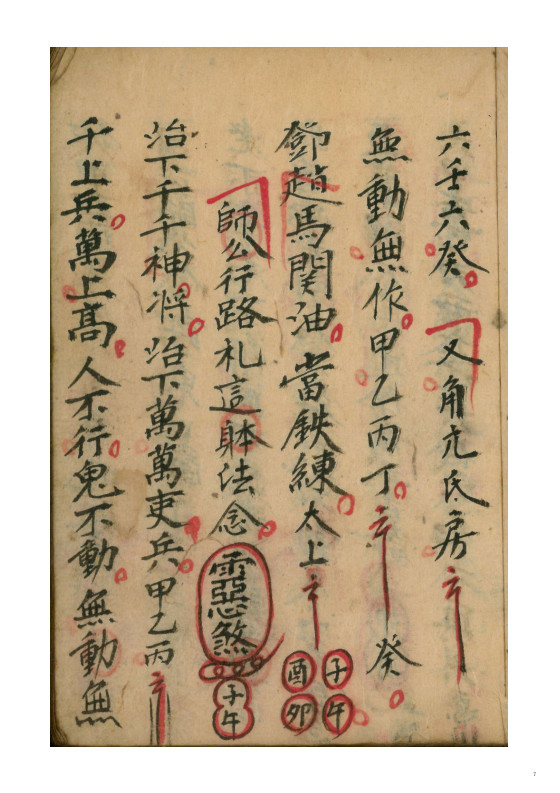 六壬六癸又角亢氏房
無動無作甲乙丙丁癸
鄧趙馬関油當鉄練太上
子午
酉卯
師公行路札這躰法念
惡煞
子午
治下千千神将治下萬萬吏兵甲乙丙
千上兵萬上髙人不行鬼不動無動無
7